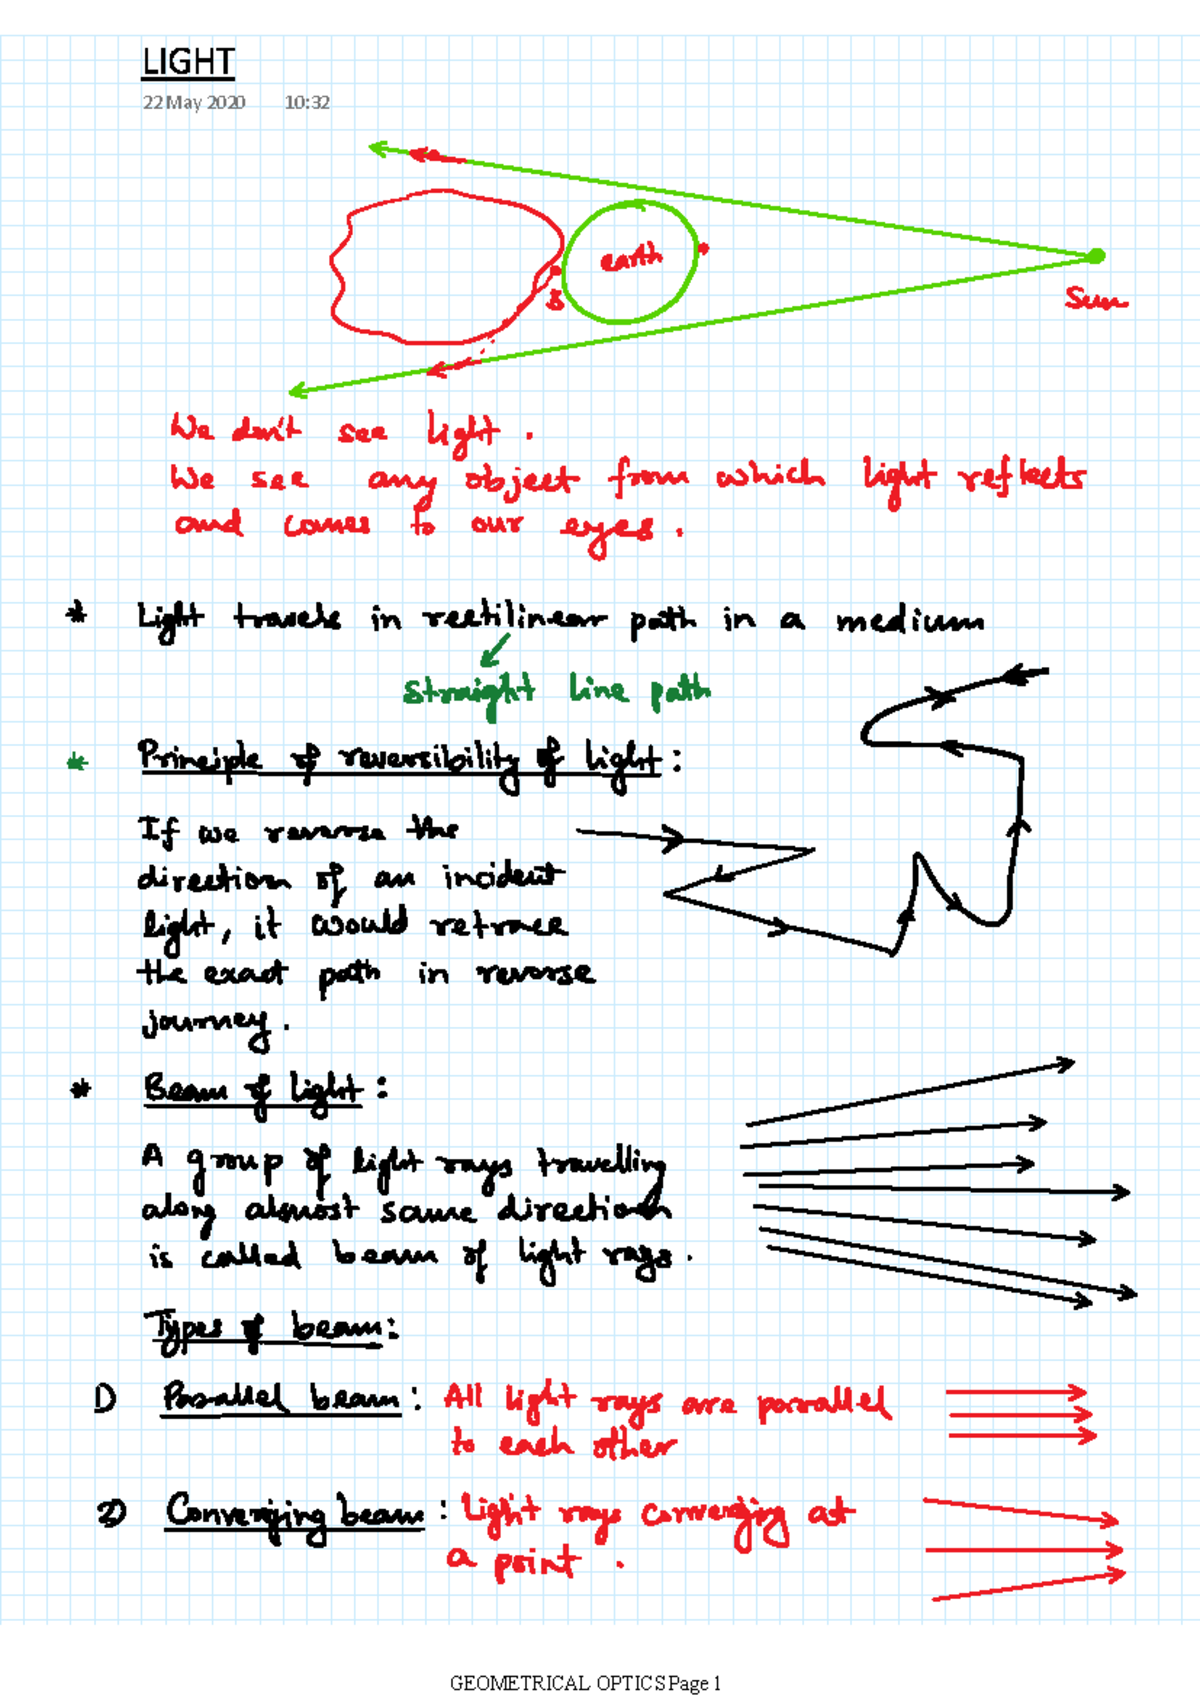 LIGHT
22 May 2020 10:32
earth
Sun
We don't see light.
We see any object from which light reflects
and comes to our eyes.
* Light travels in rectilinear path in a medium
straight line path
* Principle of reversibility of light:
If we reverse the
direction of an incident
light, it would retrace
the exact path in reverse
journey.
* Beam of light:
A group of light rays travelling
along almost same direction
is called beam of light rays.
Types of beam:
1) Parallel beam: All light rays are parallel
to each other
2) Converging beam: Light rays converging at
a point.
GEOMETRICAL OPTICS Page 1